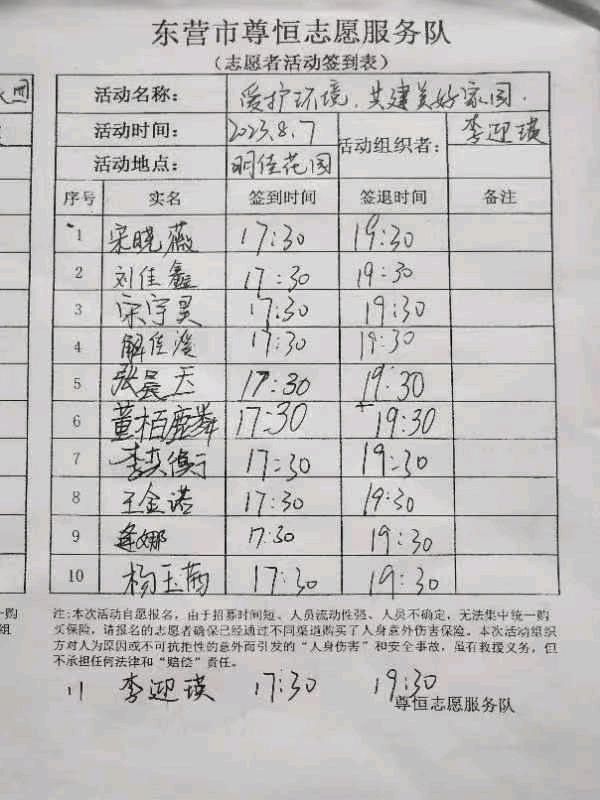 东营市尊恒志愿服务队
（志愿者活动签到表）
活动名称： 爱护环境、共建美好家园.
活动时间： 2023.8.7 活动组织者： 李迎瑛
活动地点： 明佳花园
序号 实名 签到时间 签退时间 备注
1 宋晓薇 17:30 19:30
2 刘佳鑫 17:30 19:30
3 宋宇昊 17:30 19:30
4 解佳滢 17:30 19:30
5 张昊天 17:30 19:30
6 董栢 17:30 19:30
7 李奕衡 17:30 19:30
8 王金诺 17:30 19:30
9 逄娜 17:30 19:30
10 杨玉茜 17:30 19:30
注:本次活动自愿报名，由于招募时间短、人员流动性强、人员不确定，无法集中统一购
买保险，请报名的志愿者确保已经通过不同渠道购买了人身意外伤害保险。本次活动组织
方对人为原因或不可抗拒性的意外而引发的“人身伤害”和安全事故，虽有救援义务，但
不承担任何法律和“赔偿”责任。
11 李迎瑛 17:30 19:30
尊恒志愿服务队